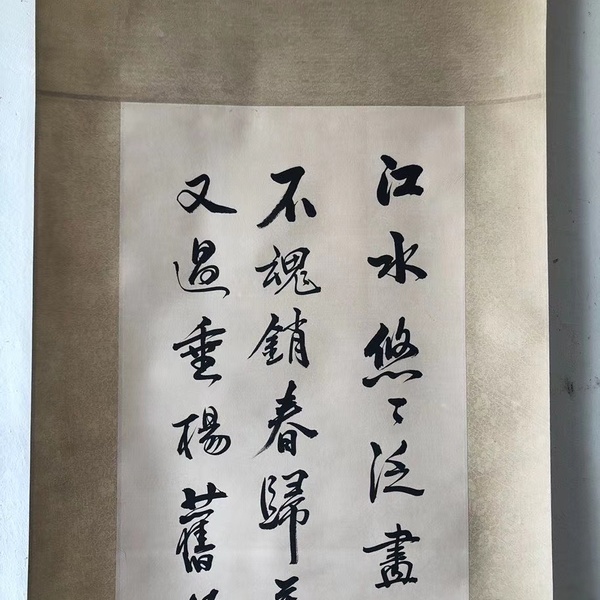 江水悠々泛畫
不魂銷春歸
又過垂楊舊